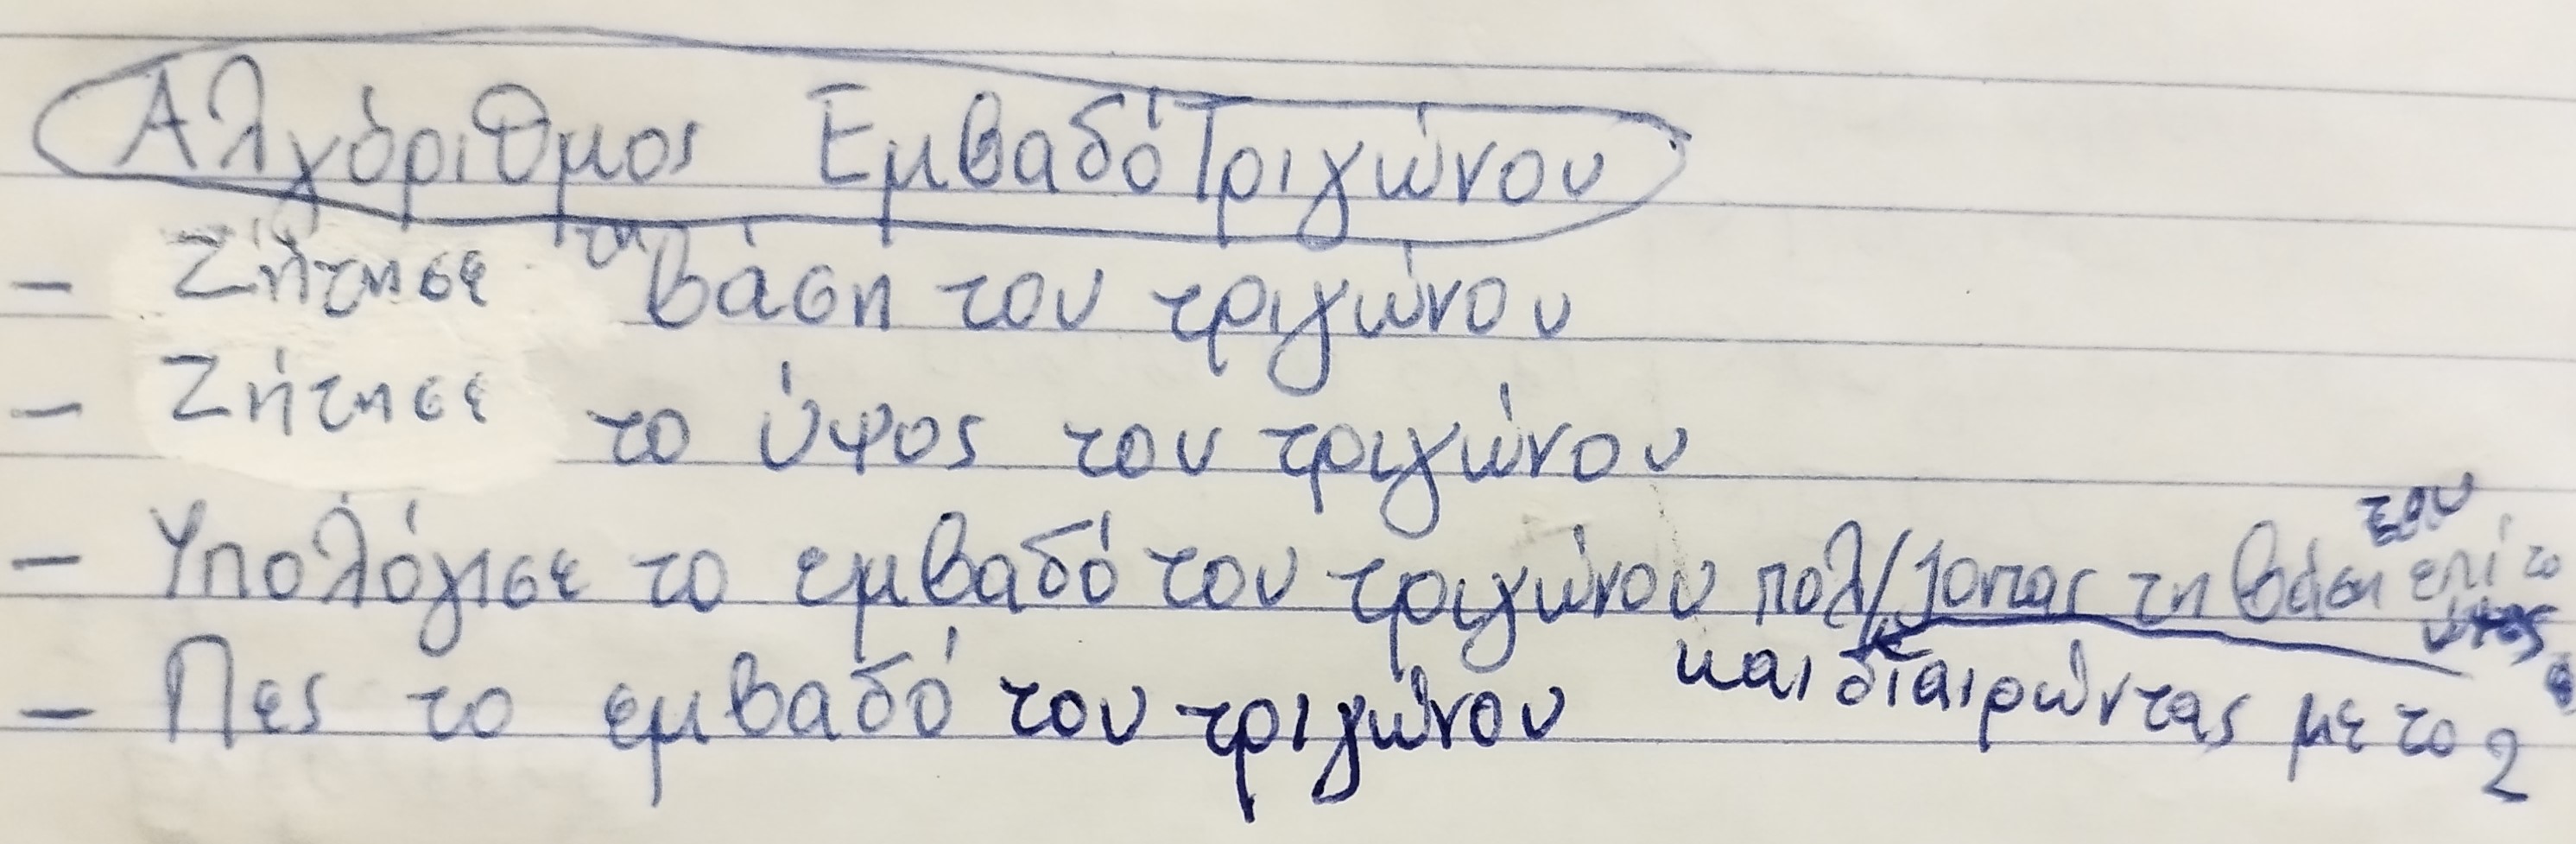 Αλγόριθμος ΕμβαδόΤριγώνου
- Ζήτησε τη βάση του τριγώνου
- Ζήτησε το ύψος του τριγώνου
- Υπολόγισε το εμβαδό του τριγώνου πολ/τας τη βάση του επί το ύψος
και διαιρώντας με το 2
- Πες το εμβαδό του τριγώνου